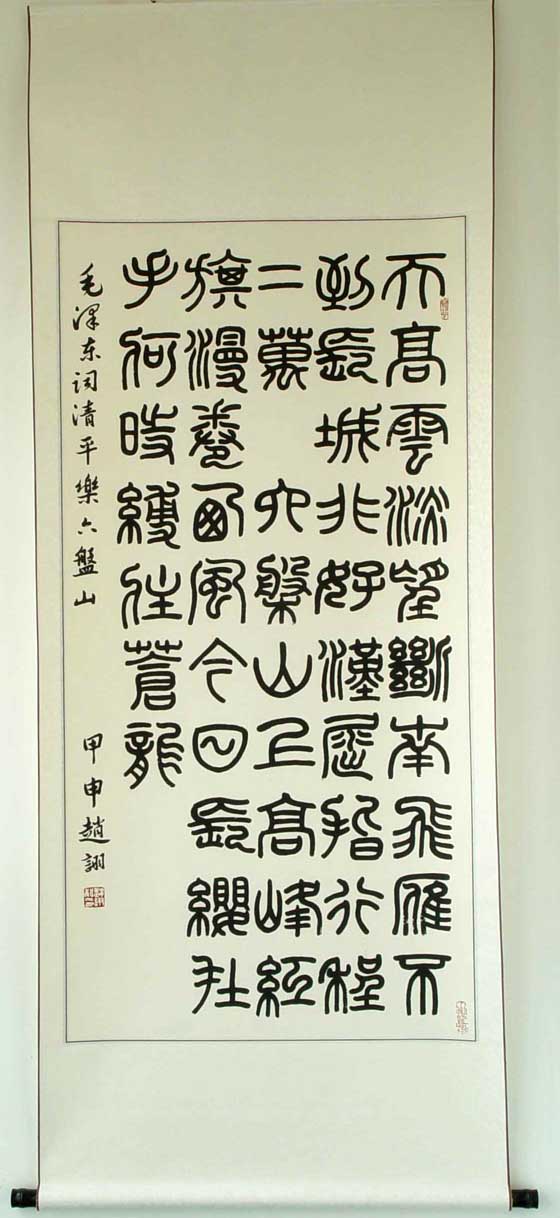 天高雲淡望斷南飛雁不
到長城非好漢屈指行程
二萬 六盤山上高峰紅
旗漫卷西風今日長纓在
手何時縛住蒼龍
毛澤东词清平樂六盤山 甲申趙詡